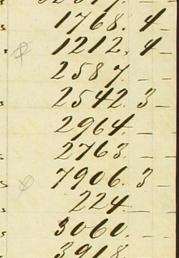 1768. 4
1212. 4
2587. —
2542. 3 —
2964. —
2763. —
7906. 3 —
224. —
3060. —
3918.